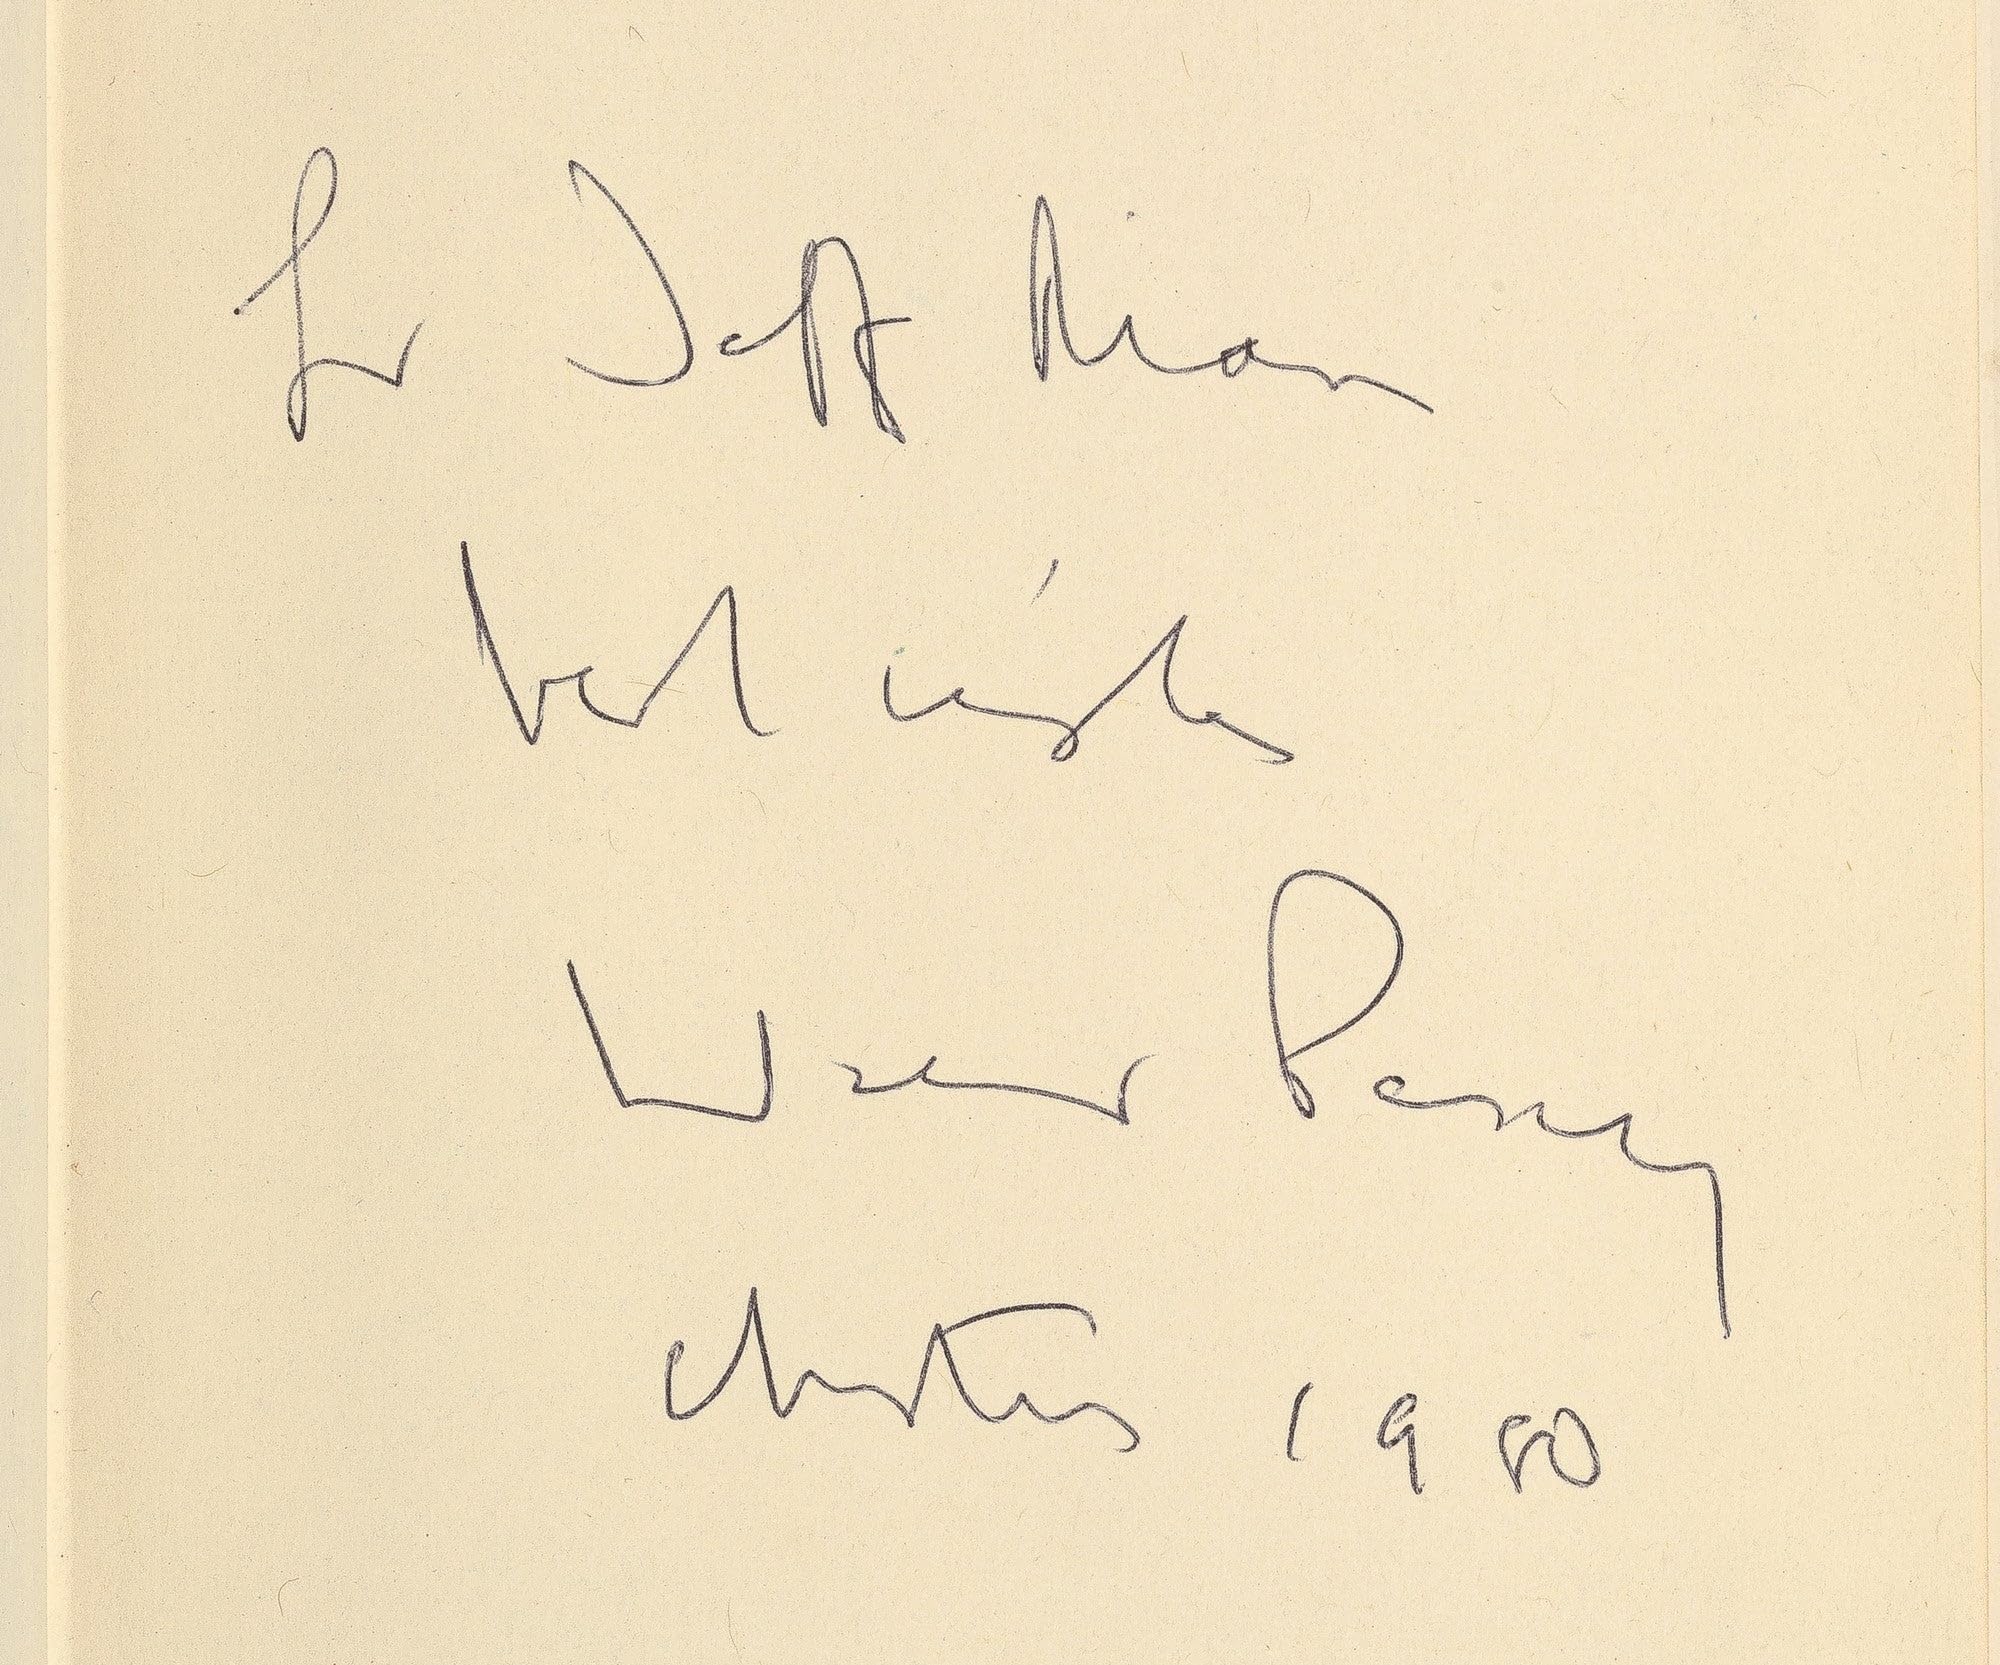 for Jeff Rian
best wishes
Walker Percy
Christmas 1980